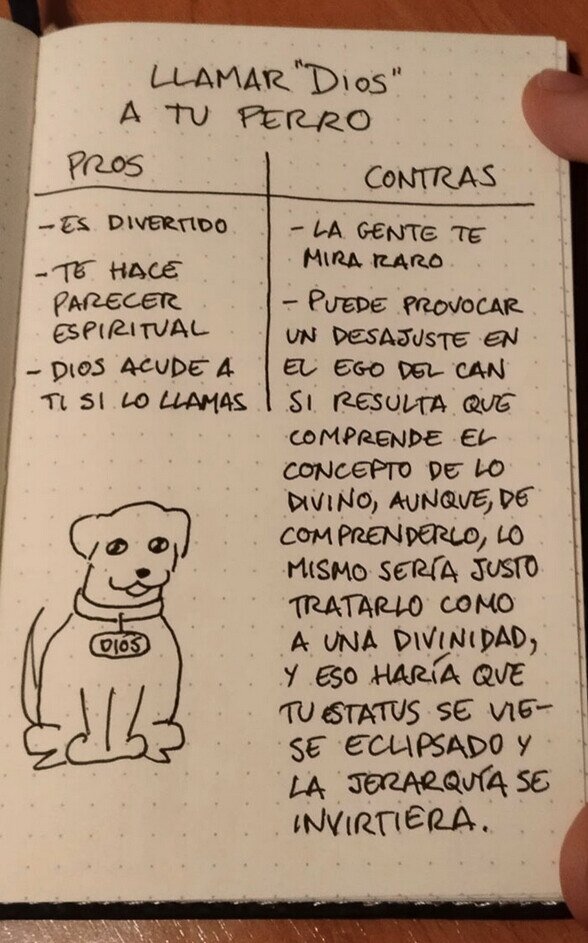 LLAMAR "DIOS"
A TU PERRO
PROS
- ES DIVERTIDO
- TE HACE
PARECER
ESPIRITUAL
- DIOS ACUDE A
TI SI LO LLAMAS
CONTRAS
- LA GENTE TE
MIRA RARO
- PUEDE PROVOCAR
UN DESAJUSTE EN
EL EGO DEL CAN
SI RESULTA QUE
COMPRENDE EL
CONCEPTO DE LO
DIVINO, AUNQUE, DE
COMPRENDERLO, LO
MISMO SERÍA JUSTO
TRATARLO COMO
A UNA DIVINIDAD,
Y ESO HARÍA QUE
TU ESTATUS SE VIE-
SE ECLIPSADO Y
LA JERARQUÍA SE
INVIRTIERA.
DIOS